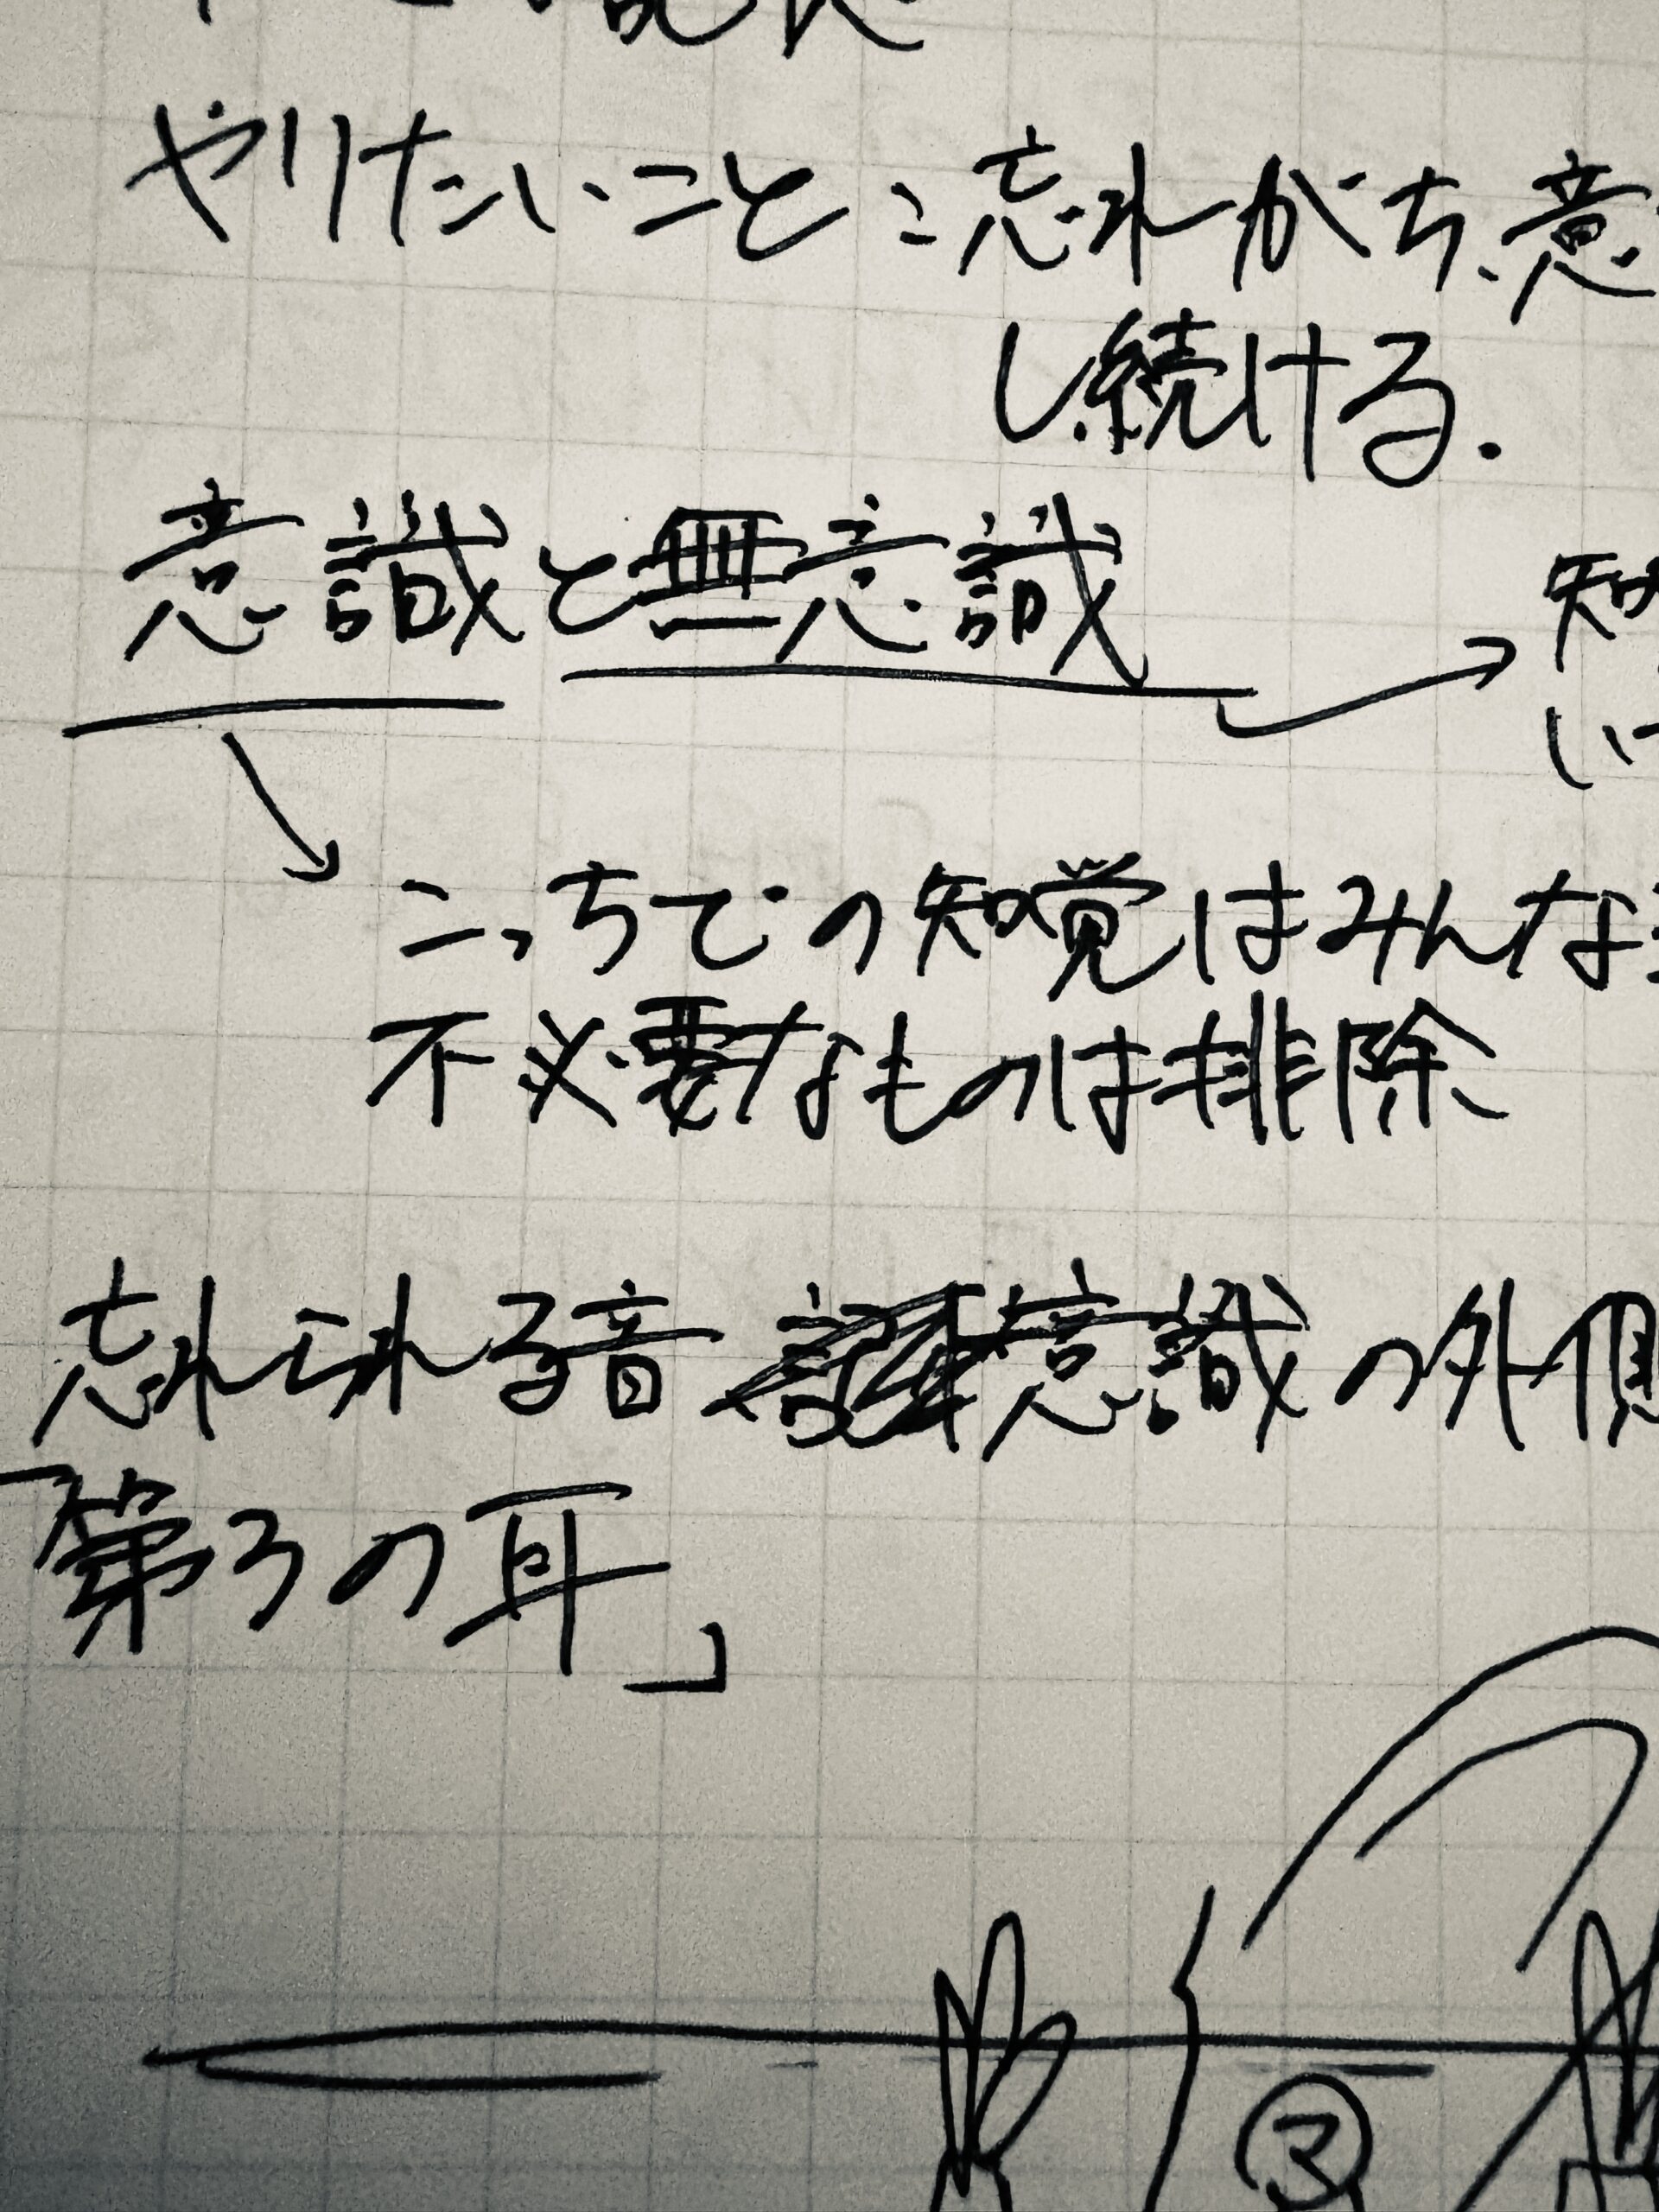 やりたいこと：忘れがち、意
し続ける.
意識と無意識
知
い
こっちでの知覚はみんな
不必要なものは排除
忘れられる音 意識の外側
「第3の耳」
③